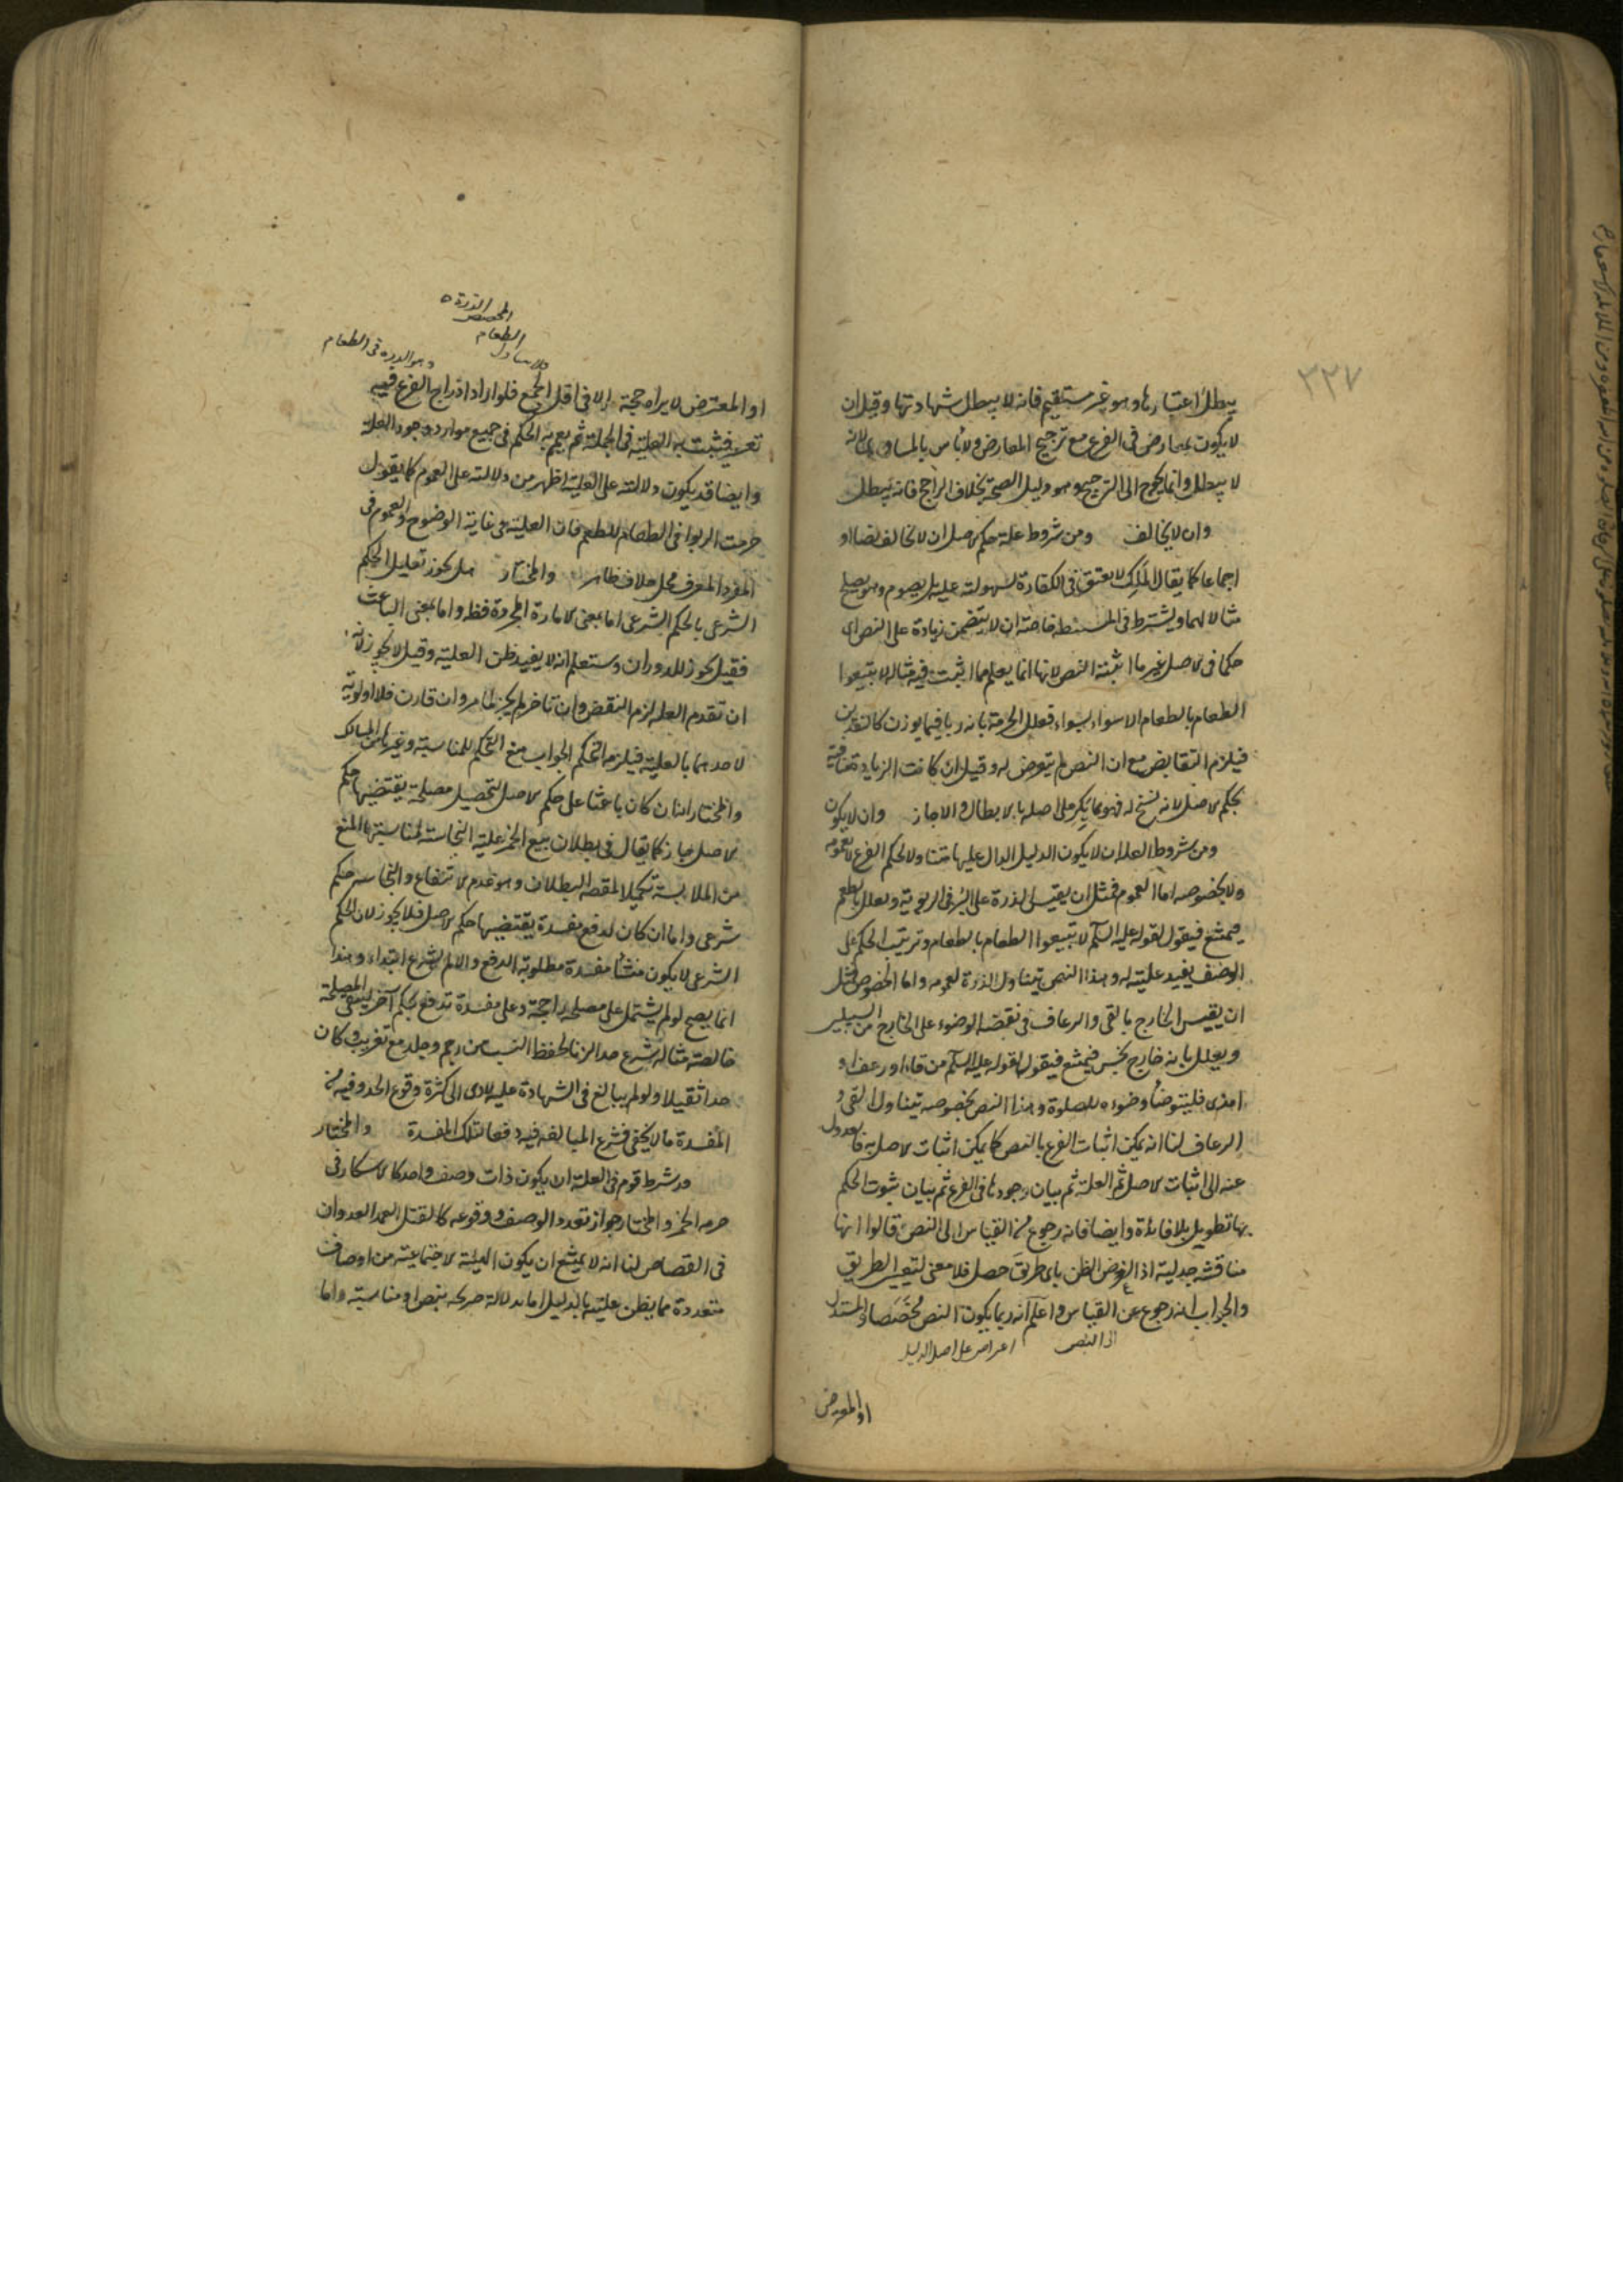 ٣٣٧
يبطل اعتبارها وهو غير مستقيم فانه لا يبطل شهادتها وقيل ان
لا يكون بمعارض في الفرع مع ترجيح المعارض ولا بأس بالمساوي لانه
لا يبطل وانما يحوج الى الترجيح وهو دليل الصحة بخلاف الراجح فانه يبطل
وان لا يخالف ومن شروط علة حكم الاصل ان لا تخالف نصا او
اجماعا كما يقال الملك لا يعتق في الكفارة لسهولته عليه بل يصوم وهو يصلح
مثالا لهما ويشترط في المستنبطة خاصة ان لا يتضمن زيادة على النص اى
حكما في الاصل غير ما اثبته النص لانها انما يعلم مما اثبت فيه مثاله لا تبيعوا
الطعام بالطعام الا سواء بسواء فعلل الحرمة بانه ربا فيما يوزن كالنقدين
فيلزم التقابض مع ان النص لم يتعرض له وقيل ان كانت الزيادة منافية
لحكم الاصل لانه نسخ له فهو مما يكر على اصله بالابطال والا جاز وان لا يكون
ومن شروط العلة ان لا يكون الدليل الدال عليها متناولا لحكم الفرع لا بعمومه
ولا بخصوصه اما العموم فمثل ان يقيس الذرة على البر في الربوية ويعلل بالطعم
فيمنع فيقول لقوله عليه السلم لا تبيعوا الطعام بالطعام وترتيب الحكم على
الوصف يفيد عليته له وهذا النص يتناول الذرة لعمومه واما الخصوص فمثل
ان يقيس الخارج بالقئ والرعاف في نقضه الوضوء على الخارج من السبيلين
ويعلل بانه خارج نجس فيمنع فيقول لقوله عليه السلم من قاء او رعف او
امذى فليتوضأ وضوءه للصلوة وهذا النص بخصوصه يتناول القئ و
الرعاف لنا انه يمكن اثبات الفرع بالنص كما يمكن اثبات الاصل به فالعدول
عنه الى اثبات الاصل ثم العلة ثم بيان وجودها في الفرع ثم بيان ثبوت الحكم
بها تطويل بلا فائدة وايضا فانه رجوع من القياس الى النص قالوا انها
مناقشة جدلية اذ الغرض الظن باى طريق حصل فلا معنى لتعيين الطريق
والجواب انه رجوع عن القياس واعلم انه ربما يكون النص مخصصا والمستدل
الى النص اعتراض على اصل الدليل
او المعترض
الذرة
المخصص
الطعام
وهو الذرة في الطعام
او المعترض لا يراه حجة الا في اقل الجمع فلو اراد ادراج الفرع فيه
تعسر فيثبت به العلية في الجملة ثم يعم به الحكم في جميع موارد وجود العلة
وايضا قد يكون دلالته على العلية اظهر من دلالته على العموم كما يقول
حرمت الربوا في الطعام للطعم فان العلية في غاية الوضوح والعموم في
المفرد المعرف محل خلاف ظاهر والمختار هل يجوز تعليل الحكم
الشرعي بالحكم الشرعي اما بمعنى الامارة المجردة فظ واما بمعنى الباعث
فقيل يجوز للدوران وستعلم انه لا يفيد ظن العلية وقيل لا يجوز لانه
ان تقدم العلة لزم النقض وان تاخر لم يجز ظاهر وان قارن فلا اولوية
لاحدهما بالعلية فيلزم التحكم الجواب منع التحكم للمناسبة وغيرها من المسالك
والمختار انه ان كان باعثا على حكم الاصل لتحصيل مصلحة يقتضيها حكم
الاصل جاز كما يقال في بطلان بيع الخمر علية النجاسة لمناسبتها المنع
من الملابسة تكميلا لمقصد البطلان وهو عدم الانتفاع والنجاسة حكم
شرعي واما ان كان لدفع مفسدة يقتضيها حكم الاصل فلا يجوز لان الحكم
الشرعي لا يكون منشأ مفسدة مطلوبة الدفع والا لم يشرع ابتداء وهذا
انما يصح لو لم يشتمل على مصلحة راجحة وعلى مفسدة تدفع بحكم آخر لتبقى المصلحة
خالصة مثاله شرع حد الزنا لحفظ النسب من رجم وجلد مع تغريب وكان
حدا ثقيلا ولو لم يبالغ في الشهادة عليه لادى الى كثرة وقوع الحد وفيه من
المفسدة ما لا يخفى فشرع المبالغة فيه دفعا لتلك المفسدة والمختار
وشرط قوم في العلة ان يكون ذات وصف واحد كالاسكار في
حرمة الخمر والمختار جواز تعدد الوصف ووقوعه كالقتل العمد العدوان
في القصاص لنا انه لا يمتنع ان يكون الهيئة الاجتماعية من اوصاف
متعددة مما يظن عليته بالدليل اما بدلالة صريحة بنص او مناسبة واما